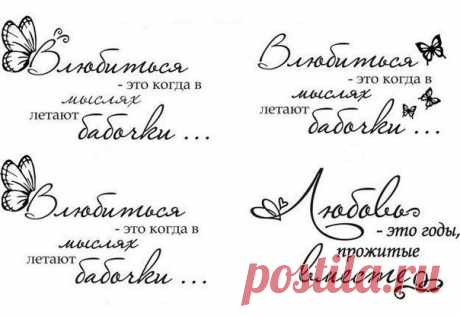 Влюбиться
- это когда в
мыслях
летают
бабочки ...
Влюбиться
- это когда в
мыслях
летают
бабочки ...
Влюбиться
- это когда в
мыслях
летают
бабочки ...
Любовь
- это годы,
прожитые
вместе
postila.ru